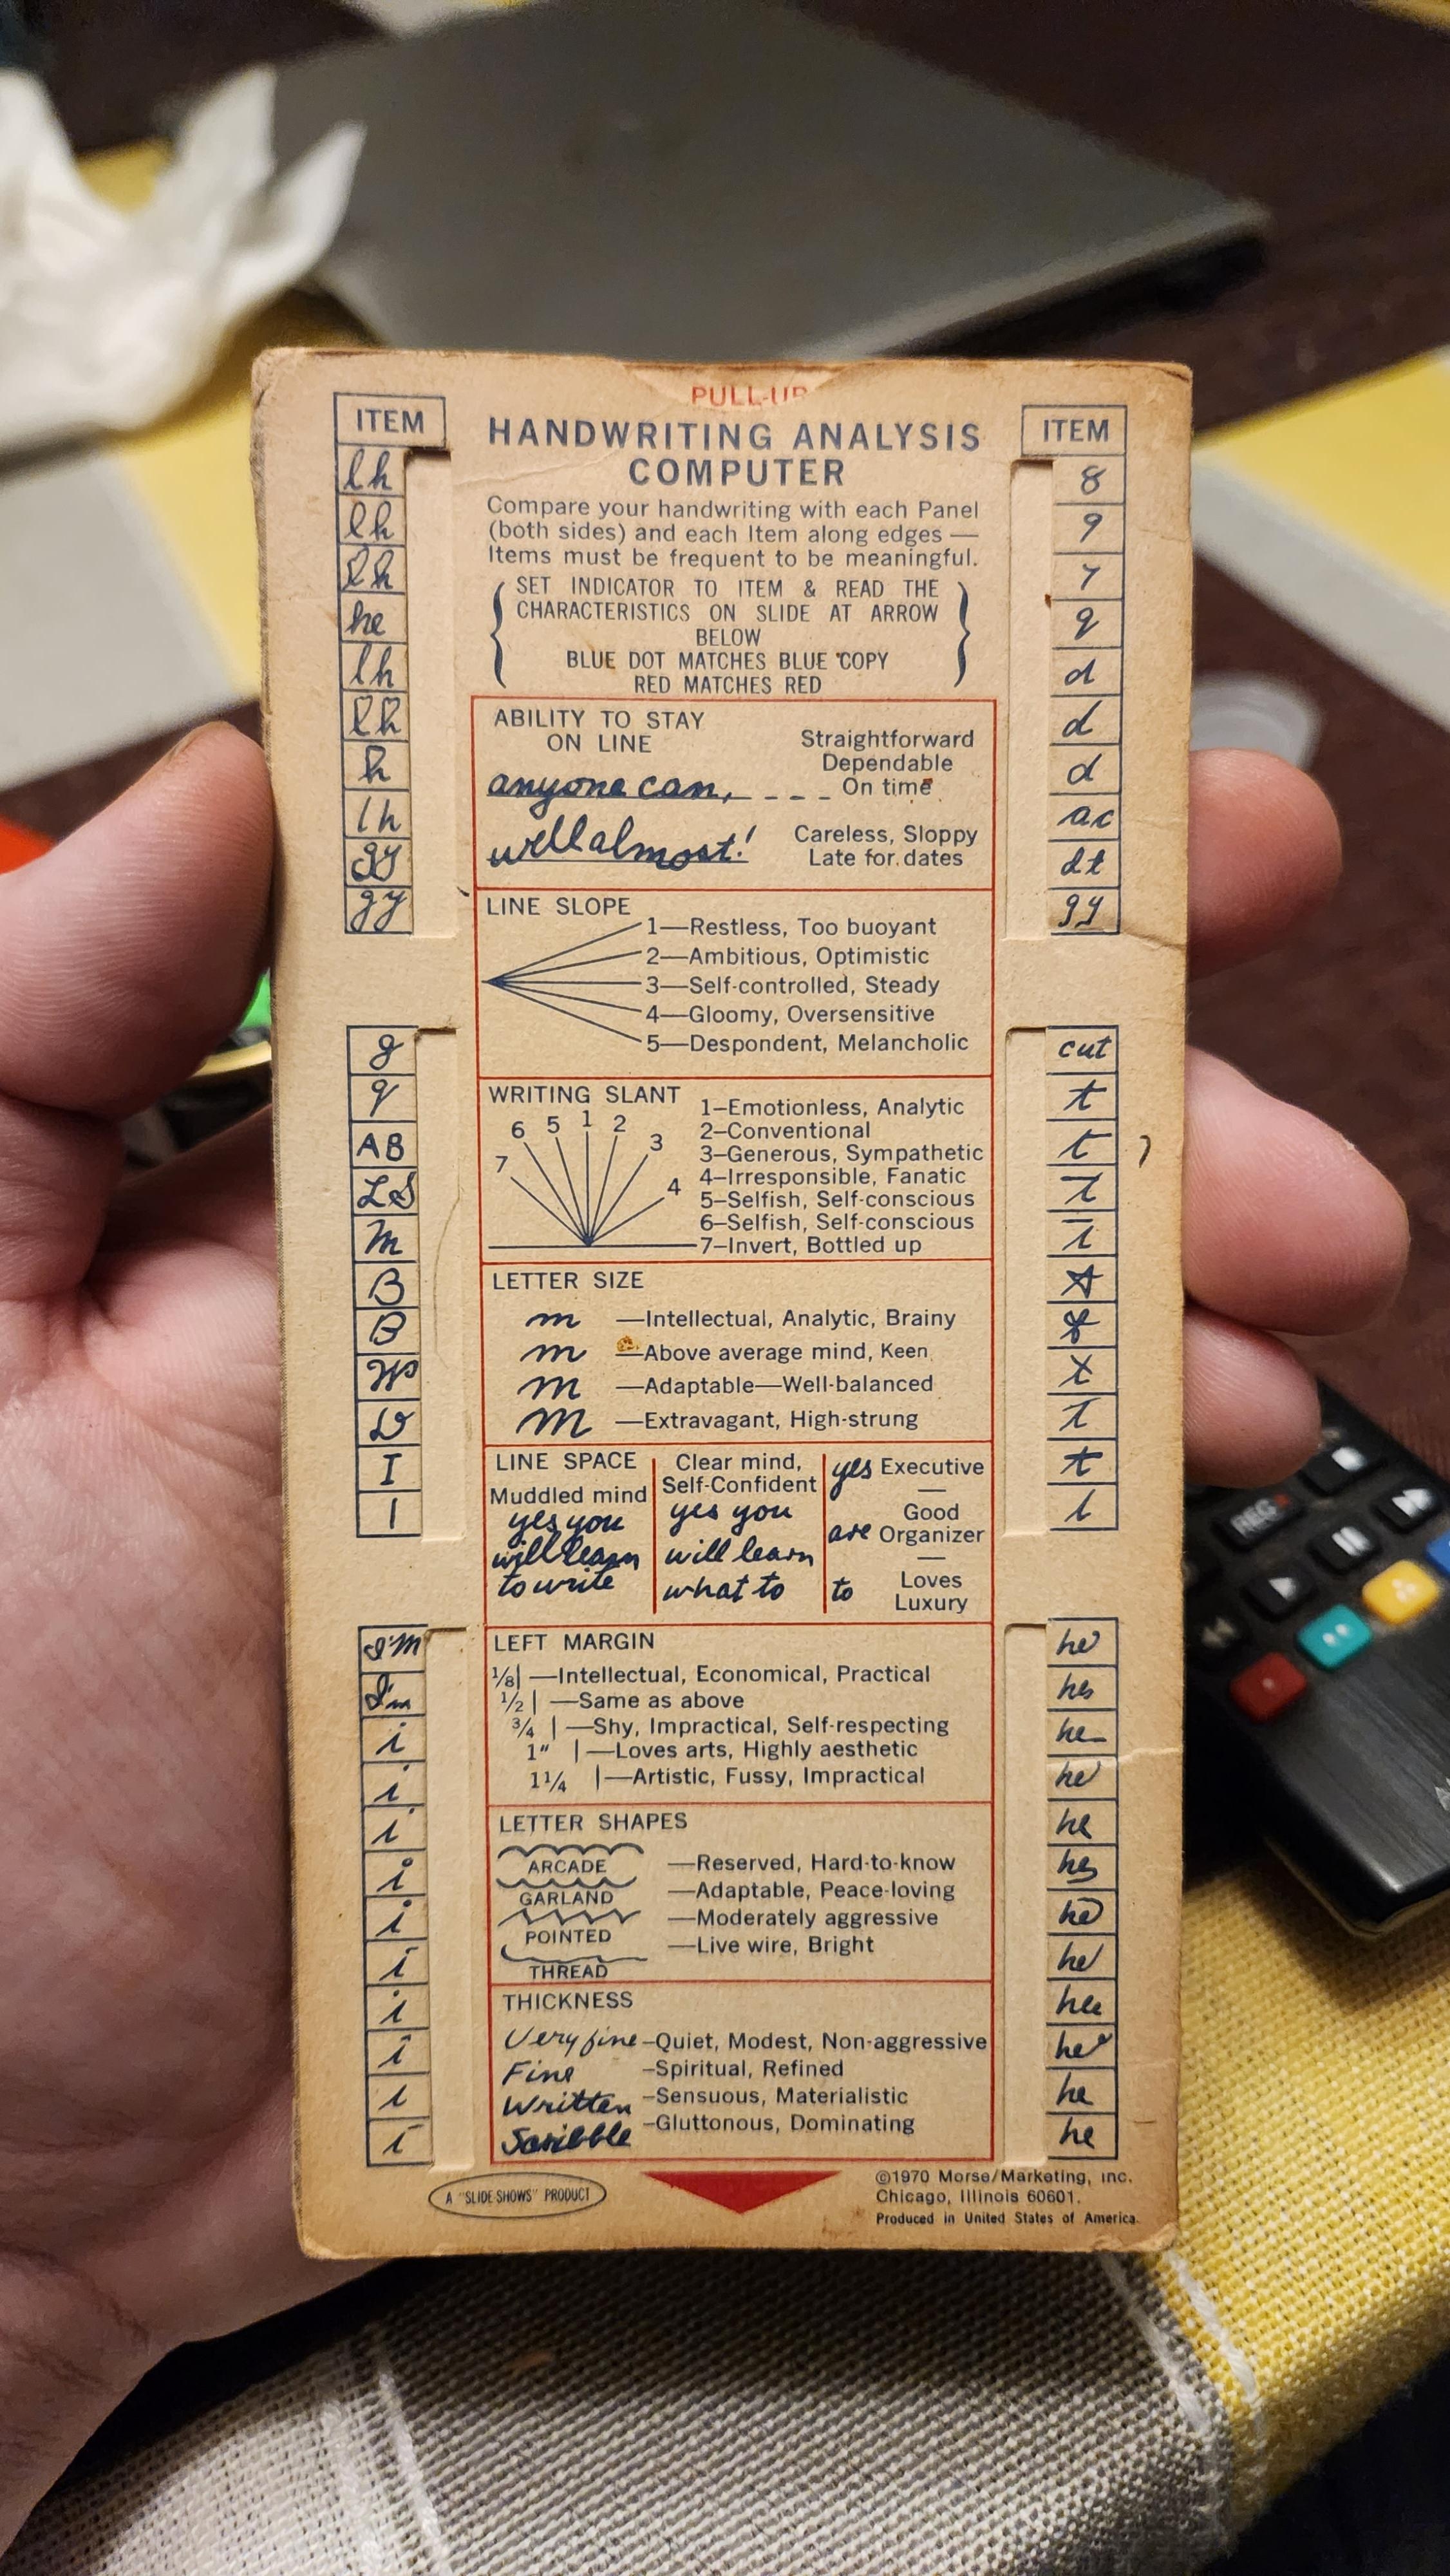 PULL-UP
HANDWRITING ANALYSIS
COMPUTER
Compare your handwriting with each Panel
(both sides) and each Item along edges —
Items must be frequent to be meaningful.
SET INDICATOR TO ITEM & READ THE
CHARACTERISTICS ON SLIDE AT ARROW
BELOW
BLUE DOT MATCHES BLUE COPY
RED MATCHES RED
ABILITY TO STAY
ON LINE
anyone can,
Straightforward
Dependable
On time
well almost!
Careless, Sloppy
Late for dates
LINE SLOPE
1—Restless, Too buoyant
2—Ambitious, Optimistic
3—Self-controlled, Steady
4—Gloomy, Oversensitive
5—Despondent, Melancholic
WRITING SLANT
6 5 1 2
7 3
4
1–Emotionless, Analytic
2–Conventional
3–Generous, Sympathetic
4–Irresponsible, Fanatic
5–Selfish, Self-conscious
6–Selfish, Self-conscious
7–Invert, Bottled up
LETTER SIZE
m —Intellectual, Analytic, Brainy
m —Above average mind, Keen
m —Adaptable—Well-balanced
m —Extravagant, High-strung
LINE SPACE
Muddled mind
yes you
will learn
to write
Clear mind,
Self-Confident
yes you
will learn
what to
yes Executive
—
are Good
Organizer
—
to Loves
Luxury
LEFT MARGIN
1/8| —Intellectual, Economical, Practical
1/2| —Same as above
3/4 |—Shy, Impractical, Self-respecting
1" |—Loves arts, Highly aesthetic
1 1/4 |—Artistic, Fussy, Impractical
LETTER SHAPES
ARCADE —Reserved, Hard-to-know
GARLAND —Adaptable, Peace-loving
POINTED —Moderately aggressive
THREAD —Live wire, Bright
THICKNESS
Very fine –Quiet, Modest, Non-aggressive
Fine –Spiritual, Refined
Written –Sensuous, Materialistic
Scribble –Gluttonous, Dominating
A "SLIDE-SHOWS" PRODUCT
©1970 Morse/Marketing, Inc.
Chicago, Illinois 60601.
Produced in United States of America
ITEM
lh
lh
lh
he
lh
lh
h
lh
gy
gy
g
q
AB
LS
m
B
B
W
D
I
I
I'm
I'm
i
i
i
i
i
i
i
i
i
i
ITEM
8
9
7
q
d
d
d
ac
dt
gy
cut
t
t
t
t
t
t
t
t
t
t
he
he
he
he
he
he
he
he
he
he
he
he
REC